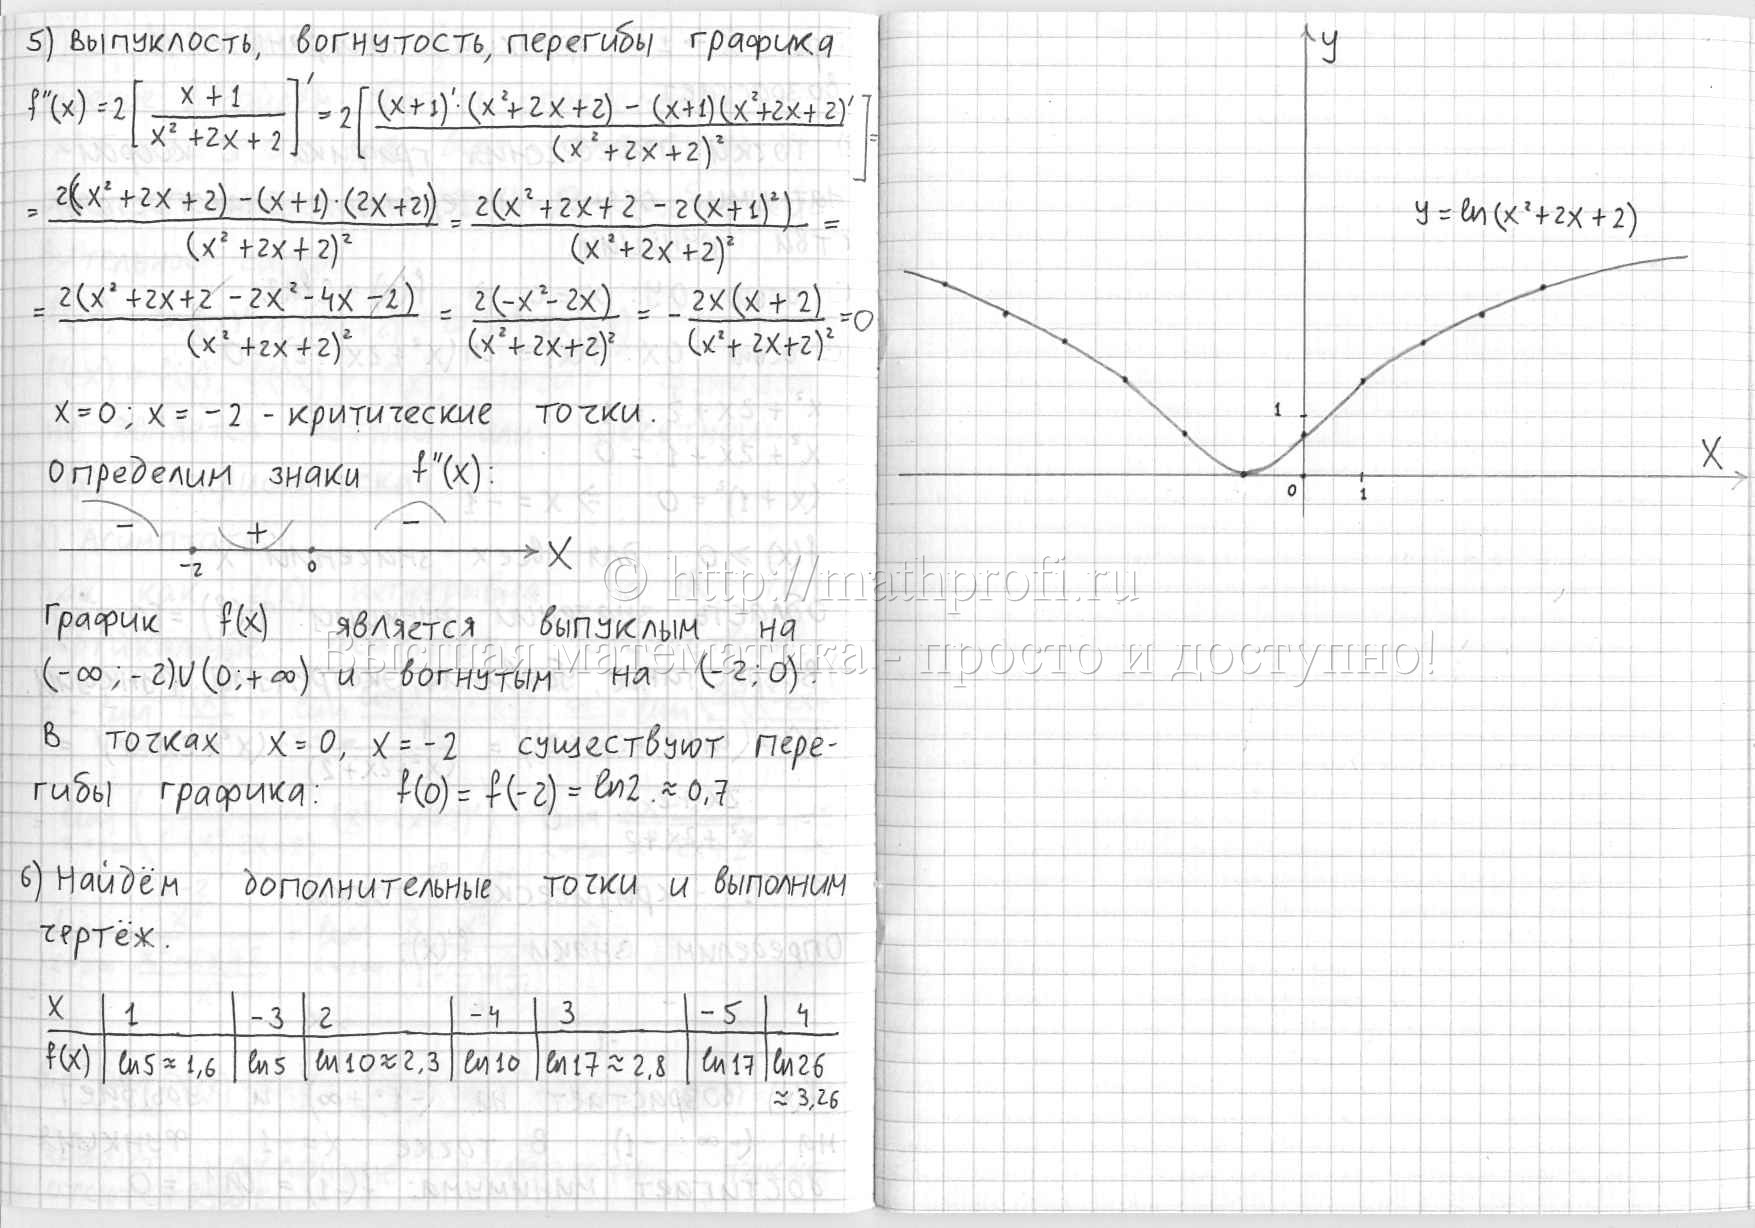 5) Выпуклость, вогнутость, перегибы графика
f''(x) = 2[(x+1)/(x²+2x+2)]' = 2[((x+1)'·(x²+2x+2) – (x+1)(x²+2x+2)')/(x²+2x+2)²] =
= 2((x²+2x+2) – (x+1)·(2x+2))/(x²+2x+2)² = 2(x²+2x+2 – 2(x+1)²)/(x²+2x+2)² =
= 2(x²+2x+2 – 2x² – 4x – 2)/(x²+2x+2)² = 2(-x²-2x)/(x²+2x+2)² = - 2x(x+2)/(x²+2x+2)² = 0
x=0; x=-2 - критические точки.
Определим знаки f''(x):
– + –
-2 0 X
График f(x) является выпуклым на
(-∞;-2)U(0;+∞) и вогнутым на (-2;0).
В точках x=0, x=-2 существуют пере-
гибы графика: f(0) = f(-2) = ln2 ≈ 0,7
6) Найдём дополнительные точки и выполним
чертёж.
x | 1 | -3 | 2 | -4 | 3 | -5 | 4
f(x) | ln5≈1,6 | ln5 | ln10≈2,3 | ln10 | ln17≈2,8 | ln17 | ln26
≈3,26
y
y = ln(x²+2x+2)
1
X
0 1
© http://mathprofi.ru
Высшая математика - просто и доступно!